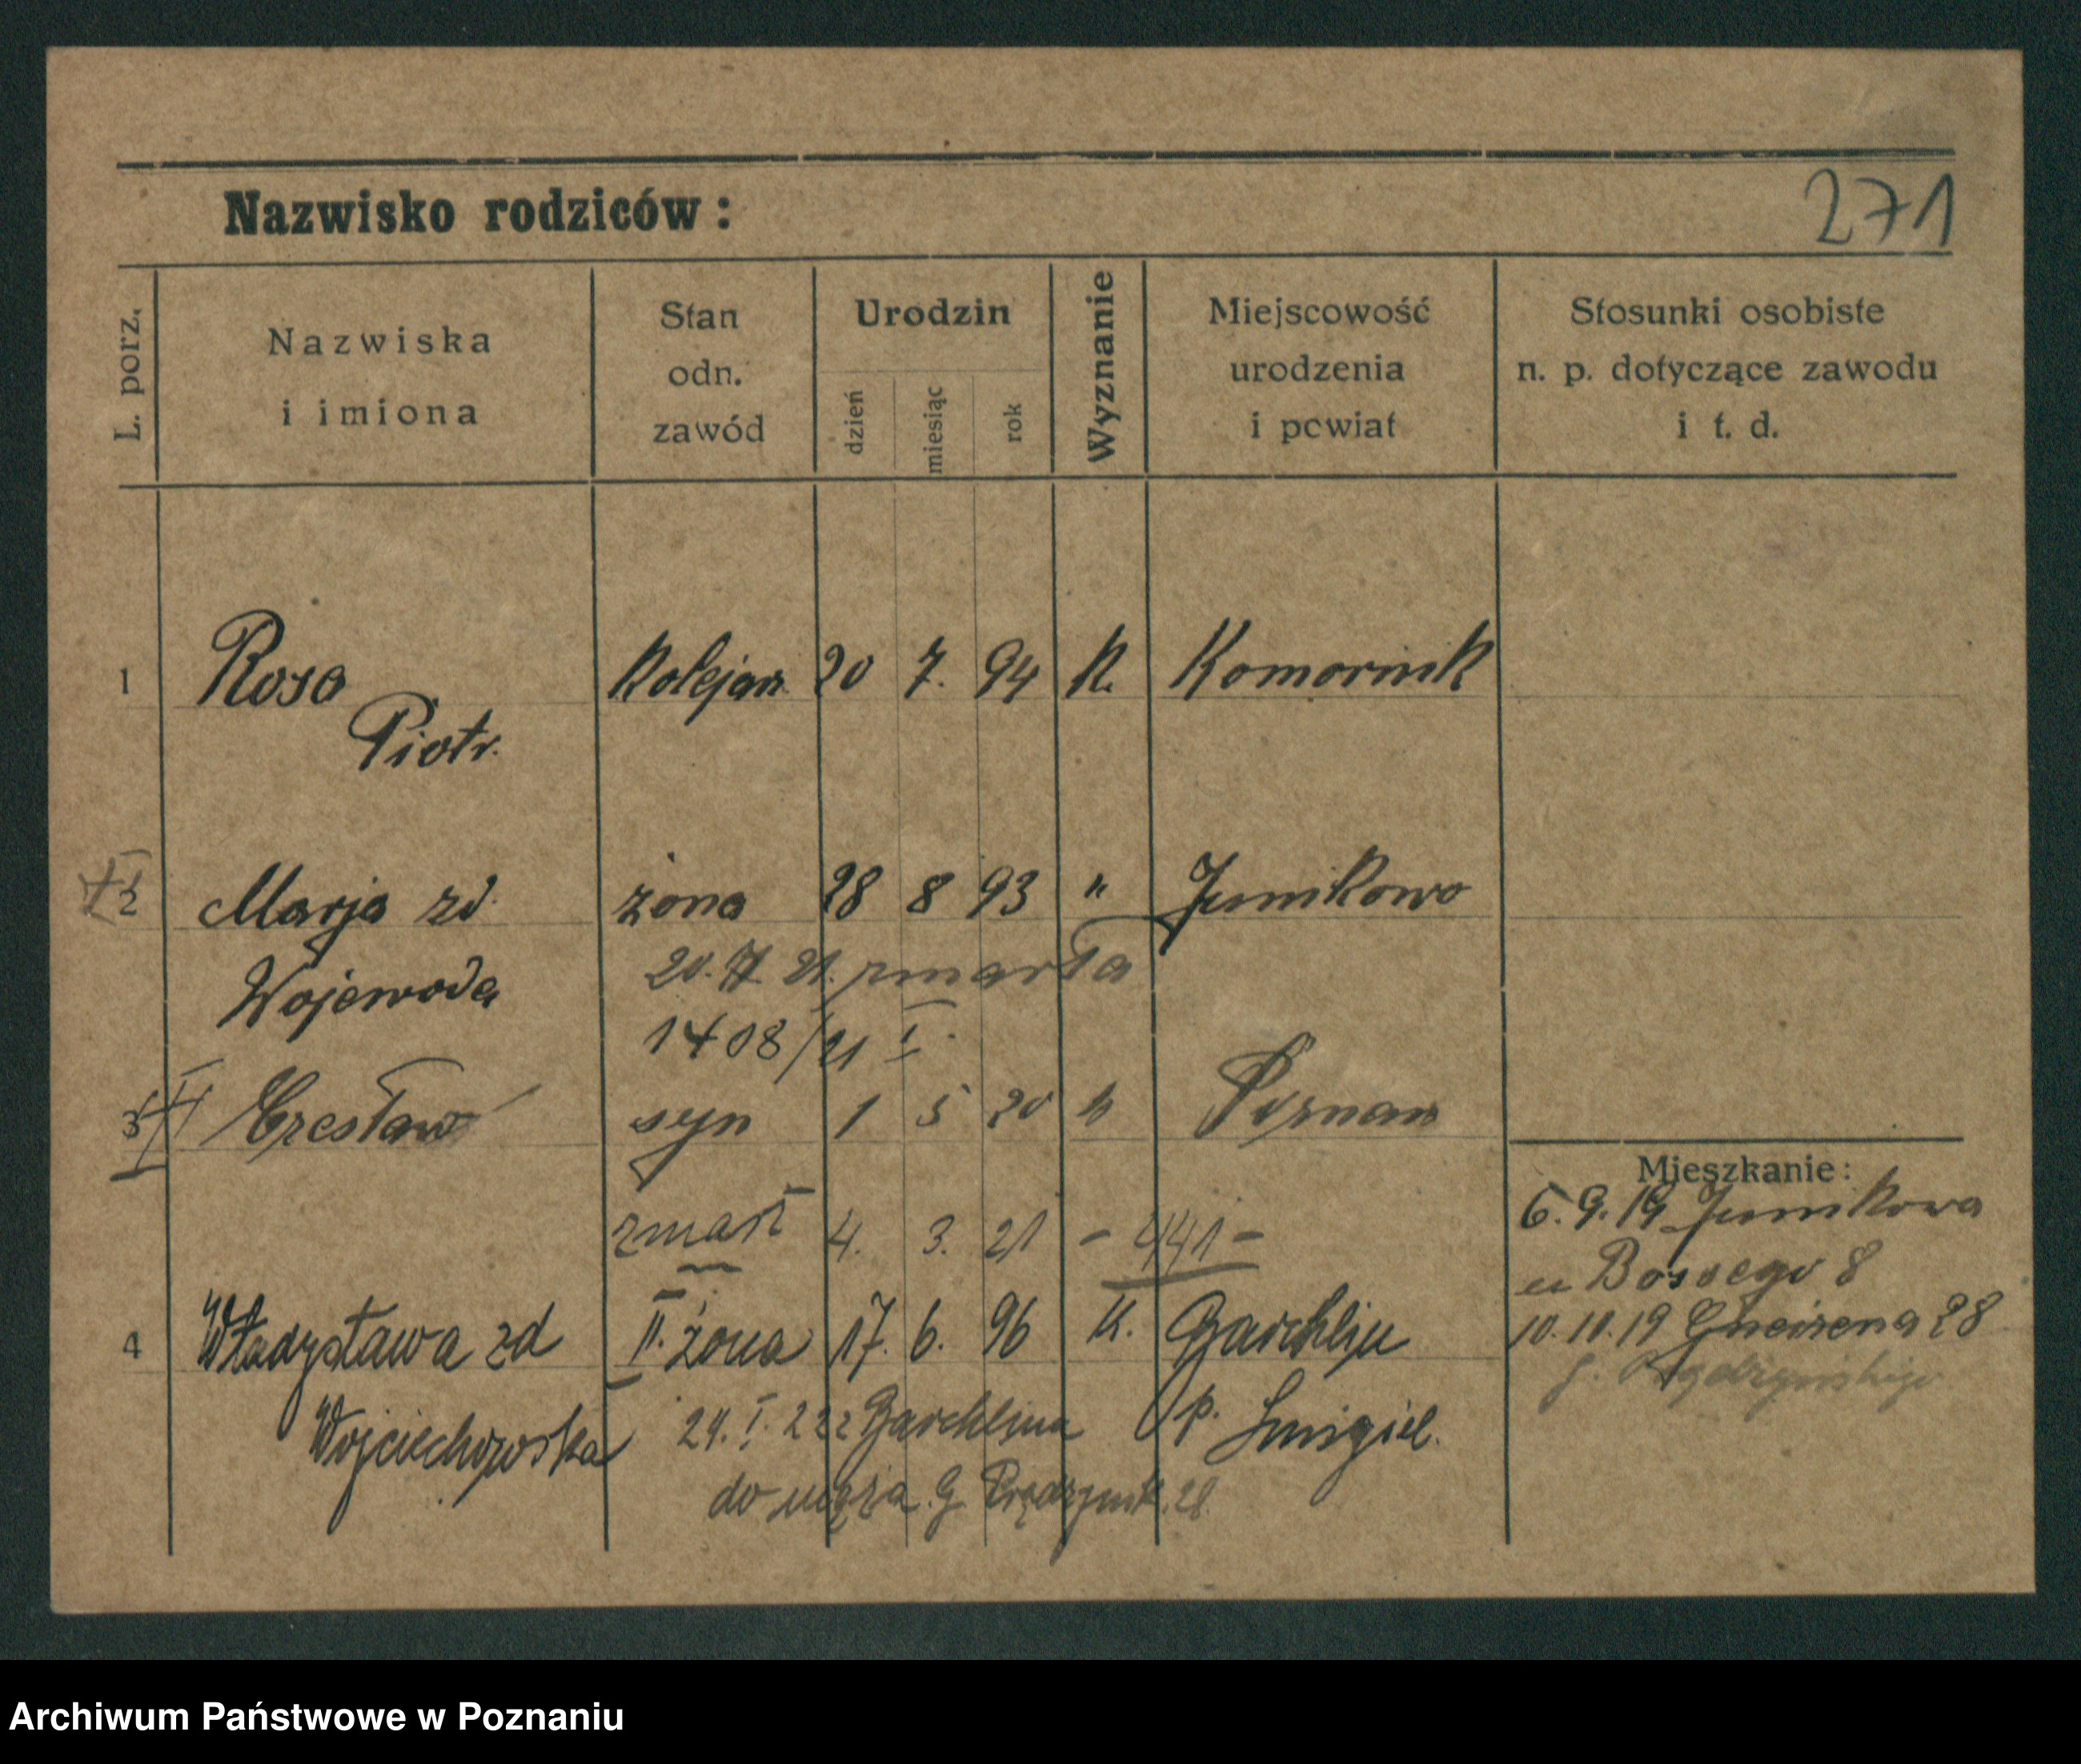 271
Nazwisko rodziców:
L. porz.
Nazwiska
i imiona
Stan
odn.
zawód
Urodzin
dzień
miesiąc
rok
Wyznanie
Miejscowość
urodzenia
i powiat
Stosunki osobiste
n. p. dotyczące zawodu
i t. d.
1 Rosa Kolejarz 20 7. 94 K. Komornik
Piotr.
2 Marja zd. żona 28 8 93 " Junikowo
20. 21. zmarła
Wojewoda
1408/21 I.
3 Czesław syn 1 5 20 " Poznań
Mieszkanie:
zmarł 4. 3. 21 - 441 -
6. 9. 19 Junikowa
u Bossego 8
4 Władysława zd II. żona 17. 6. 96 K.
10. 10. 19 Gneizena 28
Wojciechowska 24. I. 22 z p. Śmigiel.
do męża. G. 28
Archiwum Państwowe w Poznaniu